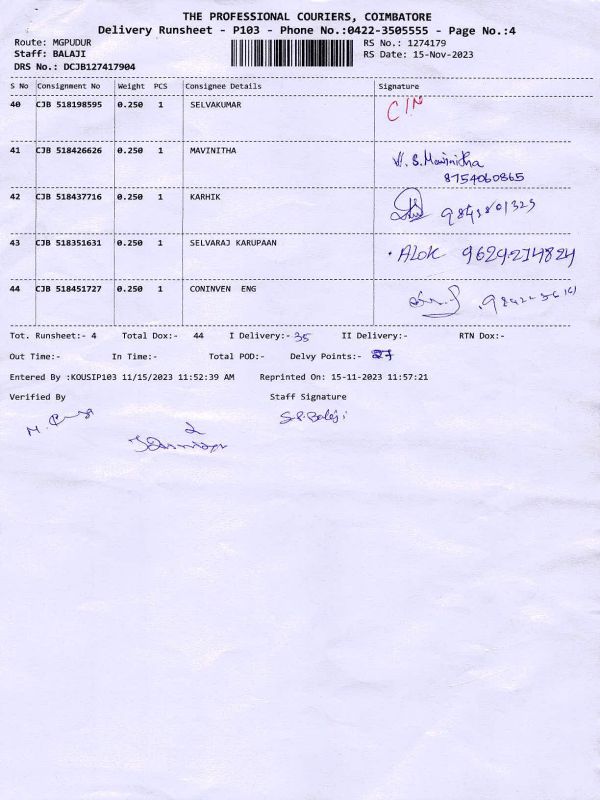 THE PROFESSIONAL COURIERS, COIMBATORE
Delivery Runsheet - P103 - Phone No.:0422-3505555 - Page No.:4
Route: MGPUDUR RS No.: 1274179
Staff: BALAJI RS Date: 15-Nov-2023
DRS No.: DCJB127417904
S No Consignment No Weight PCS Consignee Details Signature
40 CJB 518198595 0.250 1 SELVAKUMAR C/N
41 CJB 518426626 0.250 1 MAVINITHA H. S. Mavinitha
8754060865
42 CJB 518437716 0.250 1 KARHIK
43 CJB 518351631 0.250 1 SELVARAJ KARUPAAN Alok 9629214824
44 CJB 518451727 0.250 1 CONINVEN ENG
Tot. Runsheet:- 4 Total Dox:- 44 I Delivery:- 35 II Delivery:- RTN Dox:-
Out Time:- In Time:- Total POD:- Delvy Points:- 27
Entered By :KOUSIP103 11/15/2023 11:52:39 AM Reprinted On: 15-11-2023 11:57:21
Verified By Staff Signature
S.P. Balaji